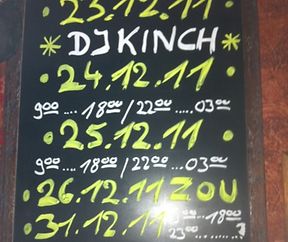 23.12.11
* DJ KINCH *
• 24.12.11 •
9⁰⁰ .... 18⁰⁰ / 22⁰⁰ ..... 03⁰⁰
• 25.12.11 •
9⁰⁰ .... 18⁰⁰ / 22⁰⁰ .... 03⁰⁰
• 26.12.11 ZOU
• 31.12.11 9⁰⁰ ... 18⁰⁰
23⁰⁰ ...